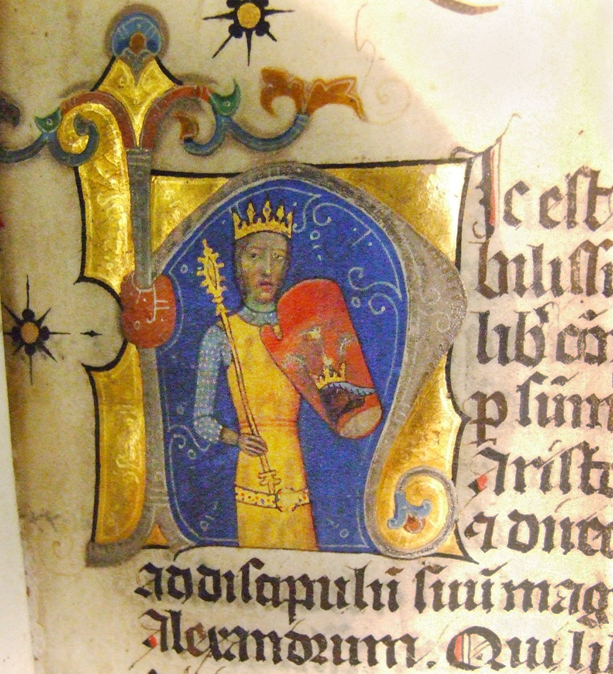 Ic est
bilissi
lib̄ cō
ꝑ sūm
Aristo
a duci
ad discipulū suū mag
Alexandrum. Qui lib